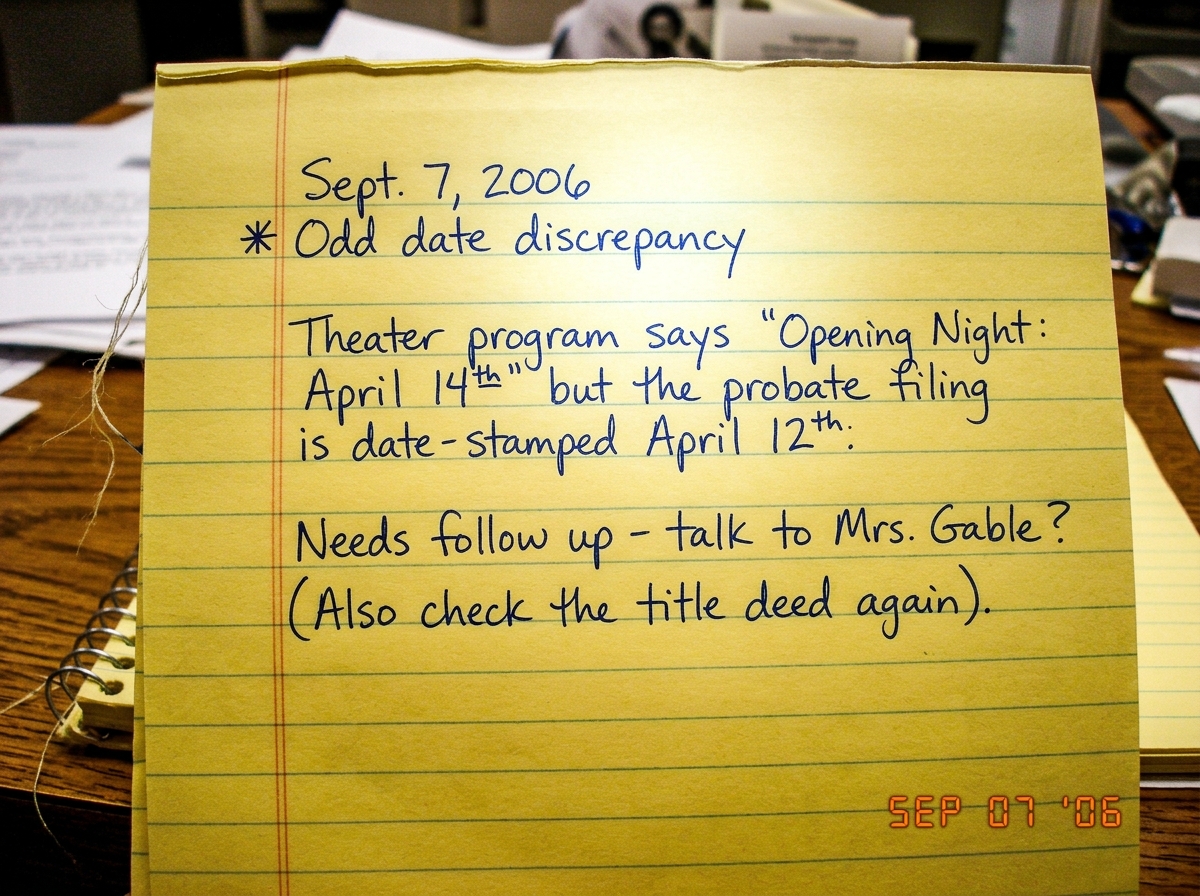 Sept. 7, 2006
* Odd date discrepancy
Theater program says "Opening Night:
April 14th" but the probate filing
is date-stamped April 12th.
Needs follow up - talk to Mrs. Gable?
(Also check the title deed again).
SEP 07 '06